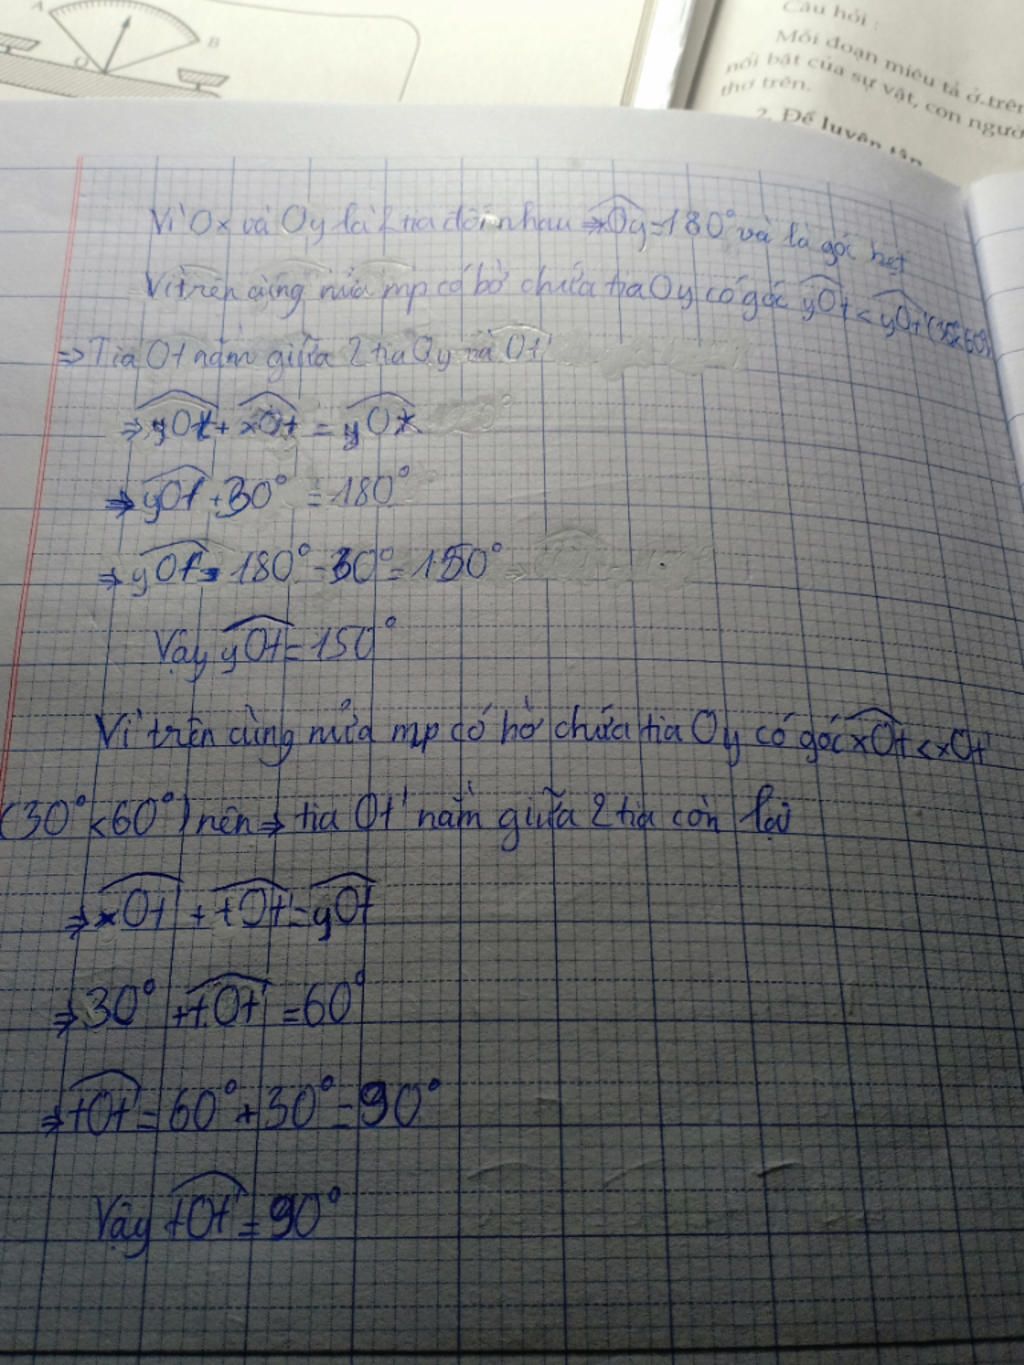 A
B
O
Câu hỏi :
Mỗi đoạn miêu tả ở trên
nổi bật của sự vật, con ngườ
thơ trên.
2. Để luyện tập
Vì Ox và Oy là 2 tia đối nhau ⇒ xOy = 180° và là góc bẹt
Vì trên cùng nửa mp có bờ chứa tia Oy có góc yOt < yOt'
⇒ Tia Ot nằm giữa 2 tia Oy và Ot'
⇒ yOt + xOt = yOx
⇒ yOt + 30° = 180°
⇒ yOt = 180° - 30° = 150°
Vậy yOt = 150°
Vì trên cùng nửa mp có bờ chứa tia Oy có góc xOt < xOt'
(30° < 60°) nên ⇒ tia Ot' nằm giữa 2 tia còn lại
⇒ xOt + tOt' = yOt
⇒ 30° + tOt' = 60°
⇒ tOt' = 60° + 30° = 90°
Vậy tOt' = 90°